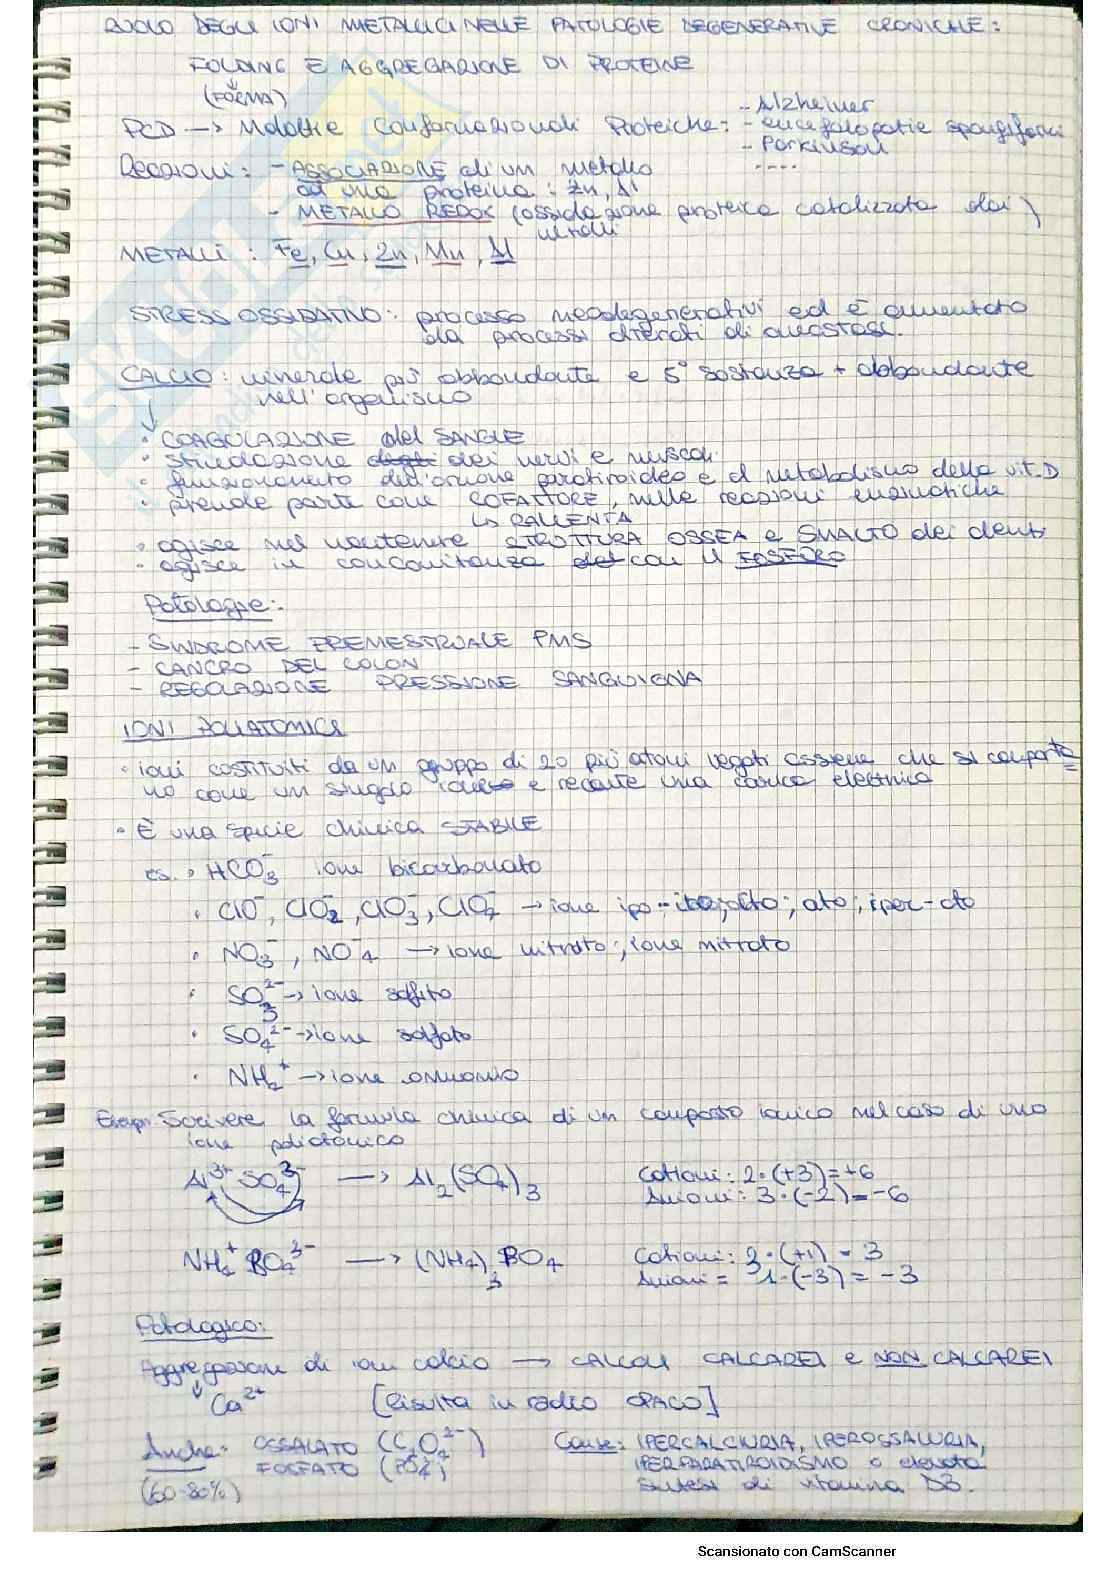 RUOLO DEGLI IONI METALLICI NELLE PATOLOGIE DEGENERATIVE CRONICHE:
FOLDING E AGGREGAZIONE DI PROTEINE
(FORMA)
PCD → Malattie Conformazionali Proteiche: - Alzheimer
- encefalopatie spongiformi
- Parkinson
- ....
Reazioni: - ASSOCIAZIONE di un metallo
ad una proteina: Zn, Al
- METALLO REDOX (ossidazione proteica catalizzata dai
metalli)
METALLI: Fe, Cu, Zn, Mn, Al
STRESS OSSIDATIVO: processo neodegenerativi ed è aumentato
da processi alterati di omeostasi.
CALCIO: minerale più abbondante e 5° sostanza + abbondante
nell'organismo
• COAGULAZIONE del SANGUE
• stimolazione degli dei nervi e muscoli
• funzionamento dell'ormone paratiroideo e il metabolismo della vit.D
• prende parte come COFATTORE, nelle reazioni enzimatiche
↳ RALLENTA
• agisce nel mantenere STRUTTURA OSSEA e SMALTO dei denti
• agisce in concomitanza del con il FOSFORO
Patologie:
- SINDROME PREMESTRUALE PMS
- CANCRO DEL COLON
- REGOLAZIONE PRESSIONE SANGUIGNA
IONI POLIATOMICI
• ioni costituiti da un gruppo di 2 o più atomi legati assieme che si comporta=
no come un singolo ione e recante una carica elettrica
• È una specie chimica STABILE
es. • HCO₃⁻ ione bicarbonato
• ClO⁻, ClO₂⁻, ClO₃⁻, ClO₄⁻ → ione ipo- ; ato; iper-ato
• NO₃⁻, NO₄⁻ → ione nitrato; ione nitrato
• SO₃²⁻ → ione solfito
• SO₄²⁻ → ione solfato
• NH₄⁺ → ione ammonio
Esempi: Scrivere la formula chimica di un composto ionico nel caso di uno
ione poliatomico
Al³⁺ SO₄ → Al₂(SO₄)₃ Cationi: 2·(+3)=+6
Anioni: 3·(-2)=-6
NH₄⁺ BO₄³⁻ → (NH₄)₃BO₄ Cationi: 3·(+1) = 3
Anioni = 1·(-3) = -3
Patologico:
Aggregazione di ioni calcio → CALCOLI CALCAREI e NON CALCAREI
↓ Ca²⁺ [Risulta in radio OPACO]
Anche: OSSALATO (C₂O₄²⁻) Cause: IPERCALCIURIA, IPEROSSALURIA,
FOSFATO IPERPARATIROIDISMO o elevata
(60-80%) sintesi di vitamina D3.
Scansionato con CamScanner